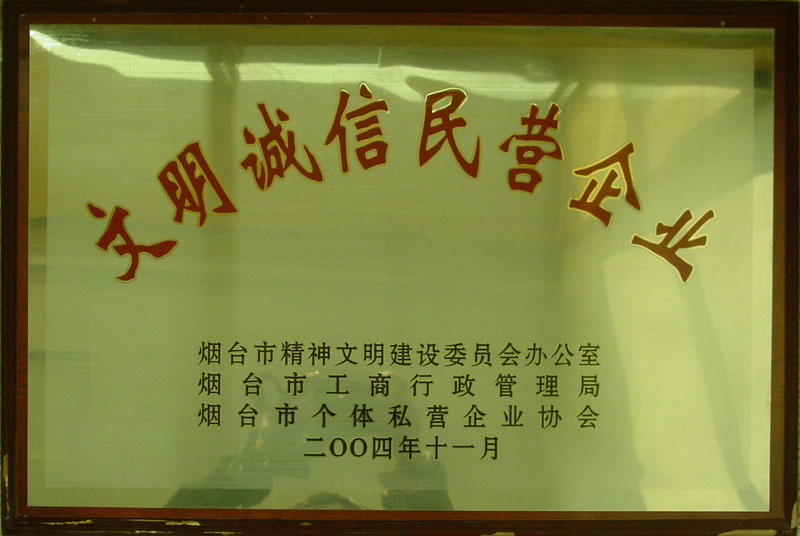 文明诚信民营企业
烟台市精神文明建设委员会办公室
烟台市工商行政管理局
烟台市个体私营企业协会
二OO四年十一月